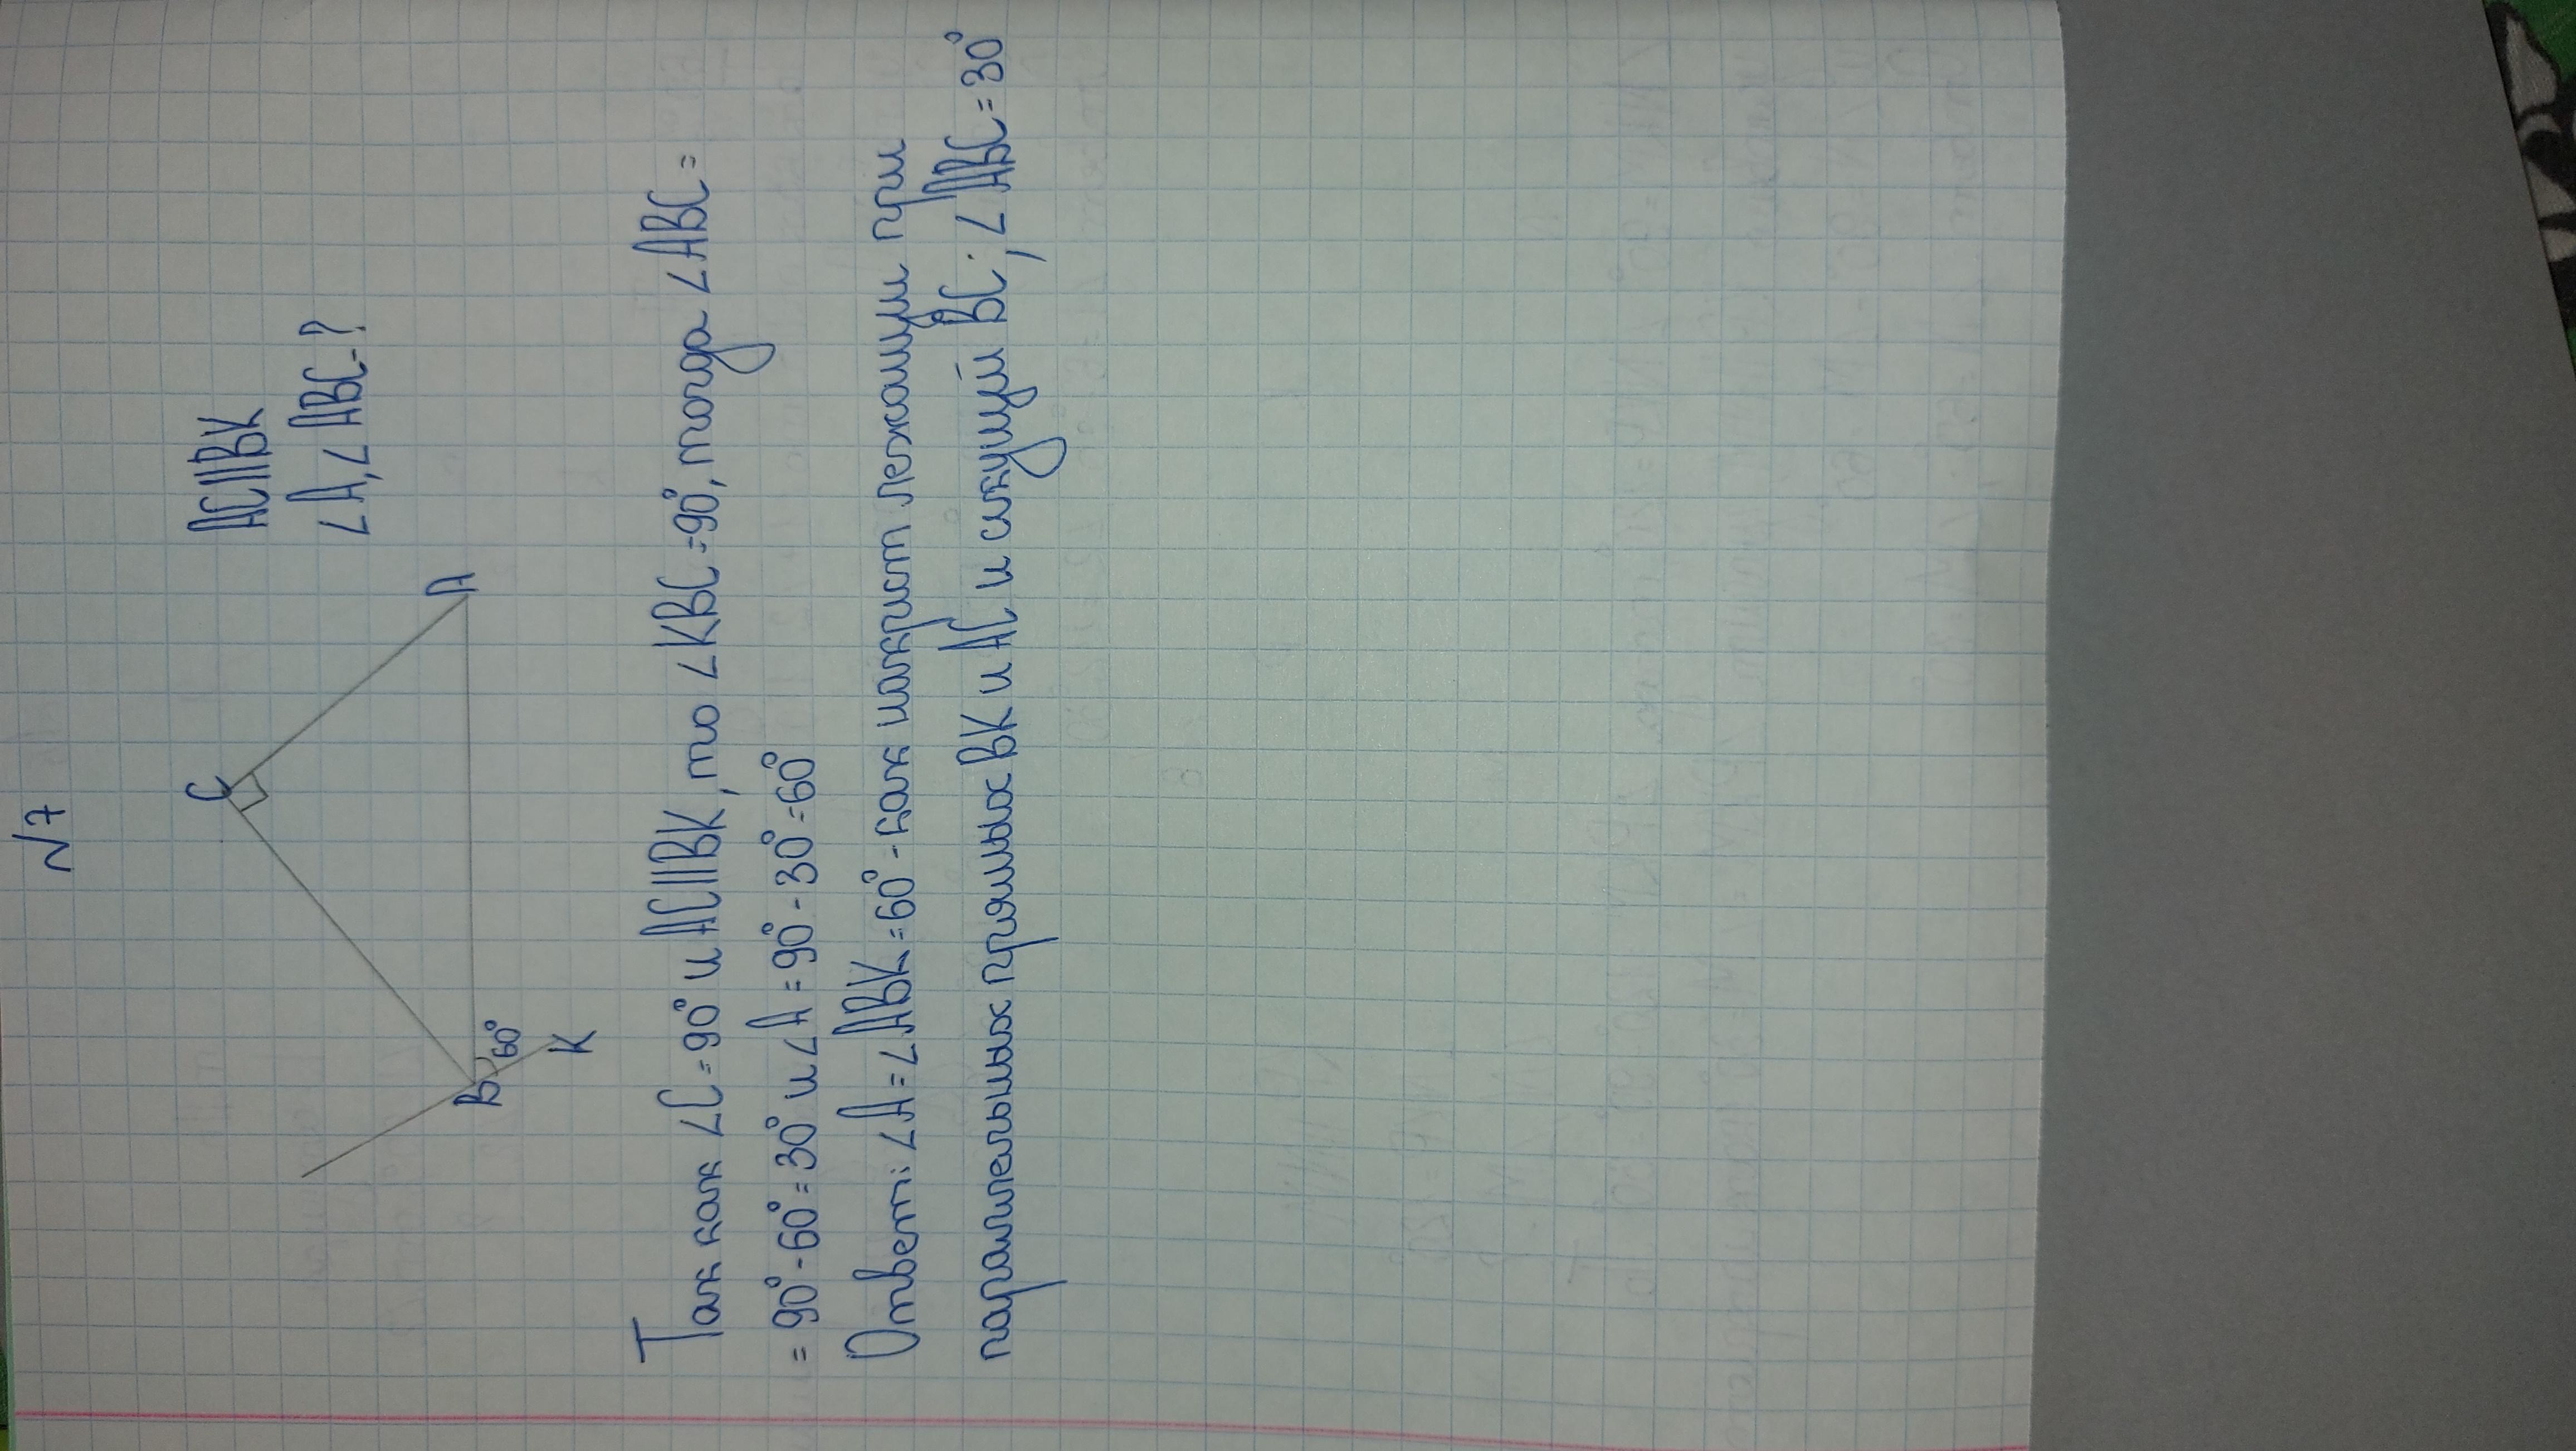 №7
C
A
B
60°
K
AC||BK
∠A, ∠ABC-?
Так как ∠C = 90° и AC||BK, то ∠KBC = 90°, тогда ∠ABC =
= 90° - 60° = 30° и ∠A = 90° - 30° = 60°
Ответ: ∠A = ∠ABK = 60° - как накрист лежащии при
параллельных прямых BK и AC и секущей BC; ∠ABC = 30°